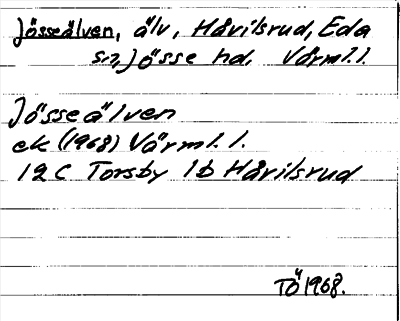 Jösseälven, älv, Håvilsrud, Eda
sn, Jösse hd. Värml. l.
Jösseälven
ek (1968) Värml. l.
12 C Torsby 1b Håvilsrud
TÖ 1968.